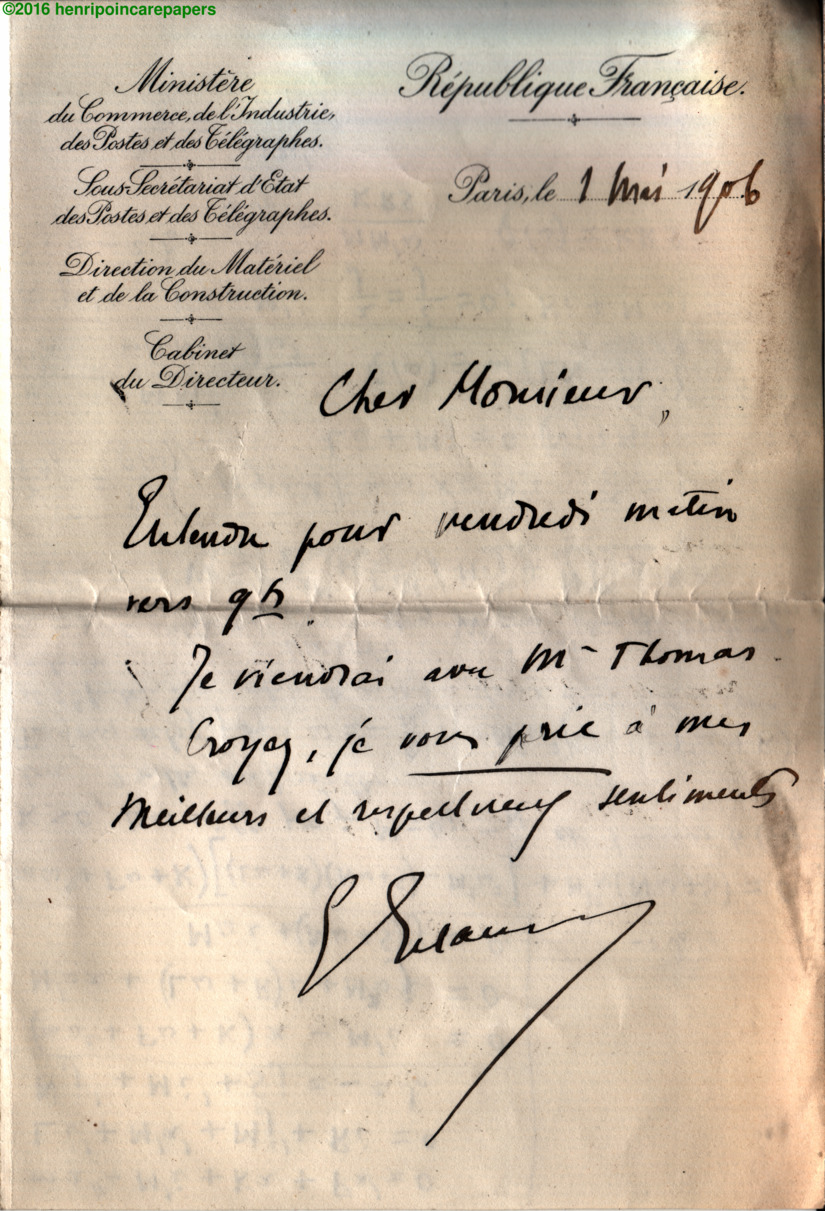 ©2016 henripoincarepapers
Ministère
du Commerce, de l'Industrie,
des Postes et des Télégraphes.
Sous-Secrétariat d'Etat
des Postes et des Télégraphes.
Direction du Matériel
et de la Construction.
Cabinet
du Directeur.
République Française.
Paris, le 1 Mai 1906
Cher Monsieur,
Entendu pour vendredi matin
vers 9h
Je viendrai avec Mr Thomas
Croyez, je vous prie à mes
Meilleurs et respectueux sentiments